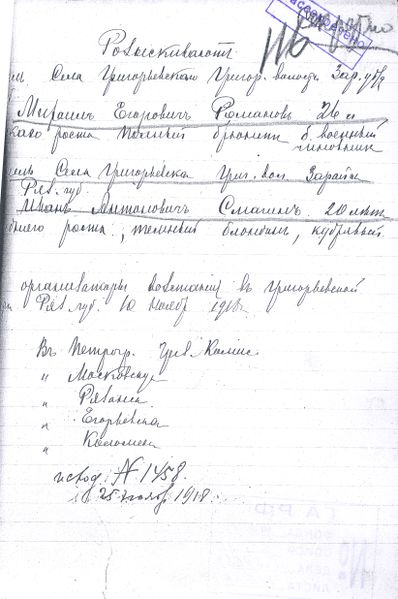 Секретно
Рассекречено
Розыскиваютъ
Села Григорьевскаго Григор. волости Зар. у.
Михаилъ Егорович Романовъ 26 л
роста темный брюнетъ б. военный
чиновникъ
Села Григорьевска Григ. вол. Зарайск
Ряз. губ.
Иванъ Антоновичъ Смагинъ 20 лѣтъ
роста, темный блондинъ, кудрявый.
организаторы возстания въ Григорьевской
Ряз. губ. 10 ноябр 1918 г.
Въ Петрогр. Чрев. Комис.
" Московскую
" Рязанск
" Егорьевска
" Коломенск
исход. № 1458.
25 ноябр 1918.
ГАРФ
ФОНД
ОПИСЬ
ДЕЛО
ЛИСТ